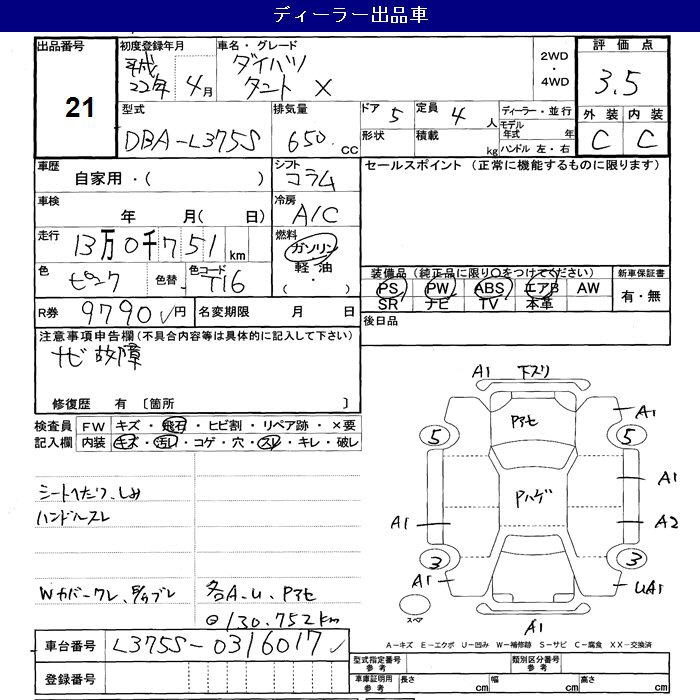 ディーラー出品車
出品番号 21
初度登録年月 平成22年 4月
車名・グレード ダイハツ タント X
2WD ・ 4WD
評価点 3.5
外装 内装
C C
型式 DBA-L375S
排気量 650 CC
ドア 5
定員 4 人
形状
積載 kg
ディーラー・並行
モデル年式 年
ハンドル 左・右
車歴 自家用・( )
シフト コラム
セールスポイント (正常に機能するものに限ります)
車検 年 月( 日)
冷房 A/C
走行 13万0千751 km
燃料 ガソリン・軽油・
色 ピンク
色替
色コード T16
装備品(純正品に限り○をつけてください)
新車保証書
PS PW ABS エアB AW
有・無
SR ナビ TV 本革
R券 9790円
名変期限 月 日
後日品
注意事項申告欄(不具合内容等は具体的に記入して下さい)
ナビ故障
修復歴 有 〔箇所 〕
検査員記入欄
FW キズ・飛石・ヒビ割・リペア跡・×要
内装 キズ・汚れ・コゲ・穴・スレ・キレ・破レ
シートヘたり、しみ
ハンドルスレ
Wカバーワレ、
各A.U、Pアセ
130.752km
A1 下スリ
Pアセ
A1
5 5
Pハゲ
A1
A1 A2
3 3
A1 UA1
スペア
A1
A-キズ E-エクボ U-凹み W-補修跡 S-サビ C-腐食 XX-交換済
車台番号 L375S-0316017
登録番号
型式指定番号 参考
類別区分番号 参考
車庫証明用 参考
長さ cm 幅 cm 高さ cm